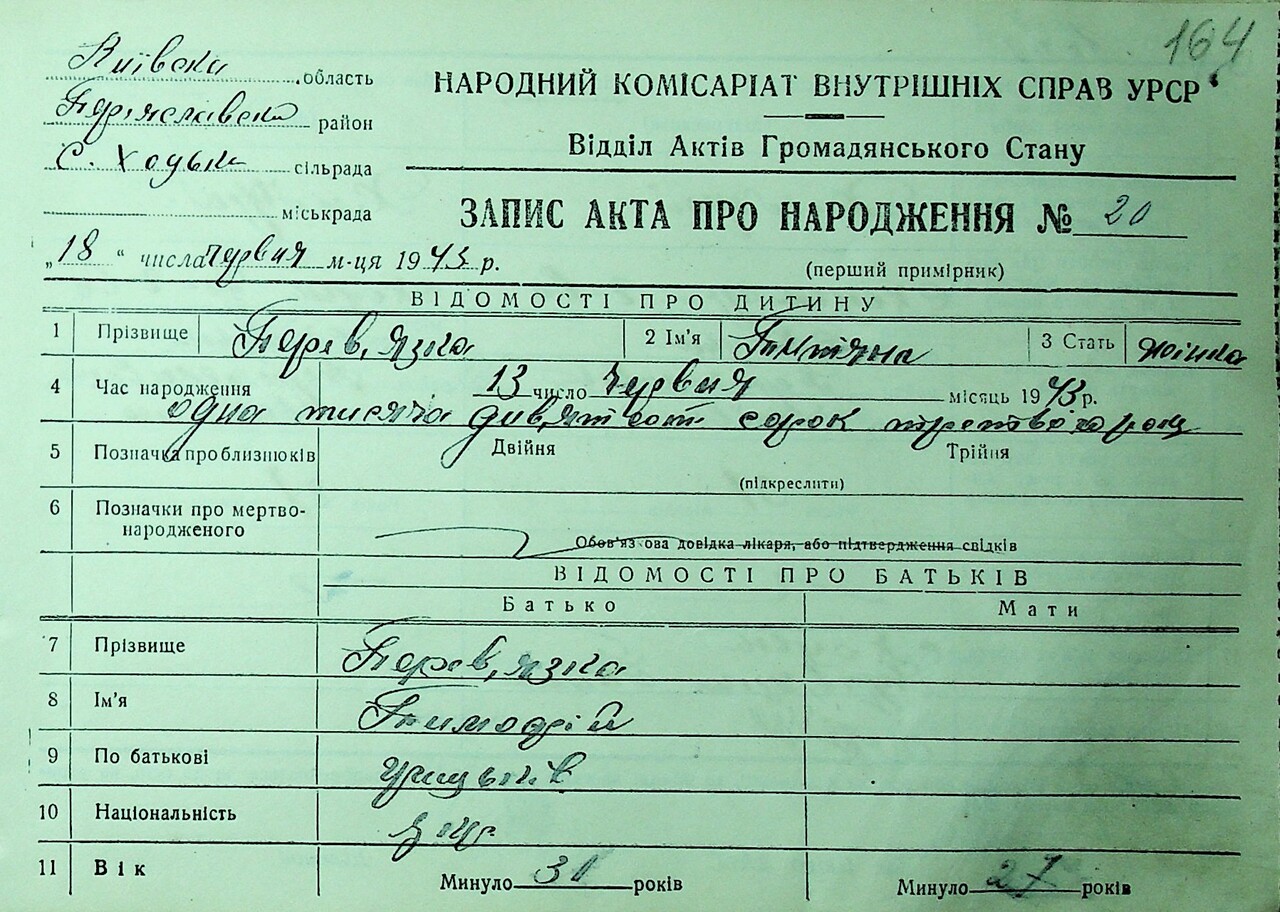 164
Київська область
Переяславський район
С. Ходьки сільрада
міськрада
НАРОДНИЙ КОМІСАРІАТ ВНУТРІШНІХ СПРАВ УРСР
Відділ Актів Громадянського Стану
ЗАПИС АКТА ПРО НАРОДЖЕННЯ № 20
„18“ числа червня м-ця 1943 р.
(перший примірник)
ВІДОМОСТІ ПРО ДИТИНУ
1 Прізвище Перев,язка 2 Ім'я Титяна 3 Стать жінка
4 Час народження 13 число червня місяць 1943 р.
одна тисяча дивятсот сорок третього року
5 Позначка про близнюків Двійня Трійня
(підкреслити)
6 Позначки про мертво-
народженого
Обов'язкова довідка лікаря, або підтвердження свідків
ВІДОМОСТІ ПРО БАТЬКІВ
Батько Мати
7 Прізвище Перев,язка
8 Ім'я Тимофій
9 По батькові
10 Національність укр
11 Вік Минуло 31 років Минуло 27 років